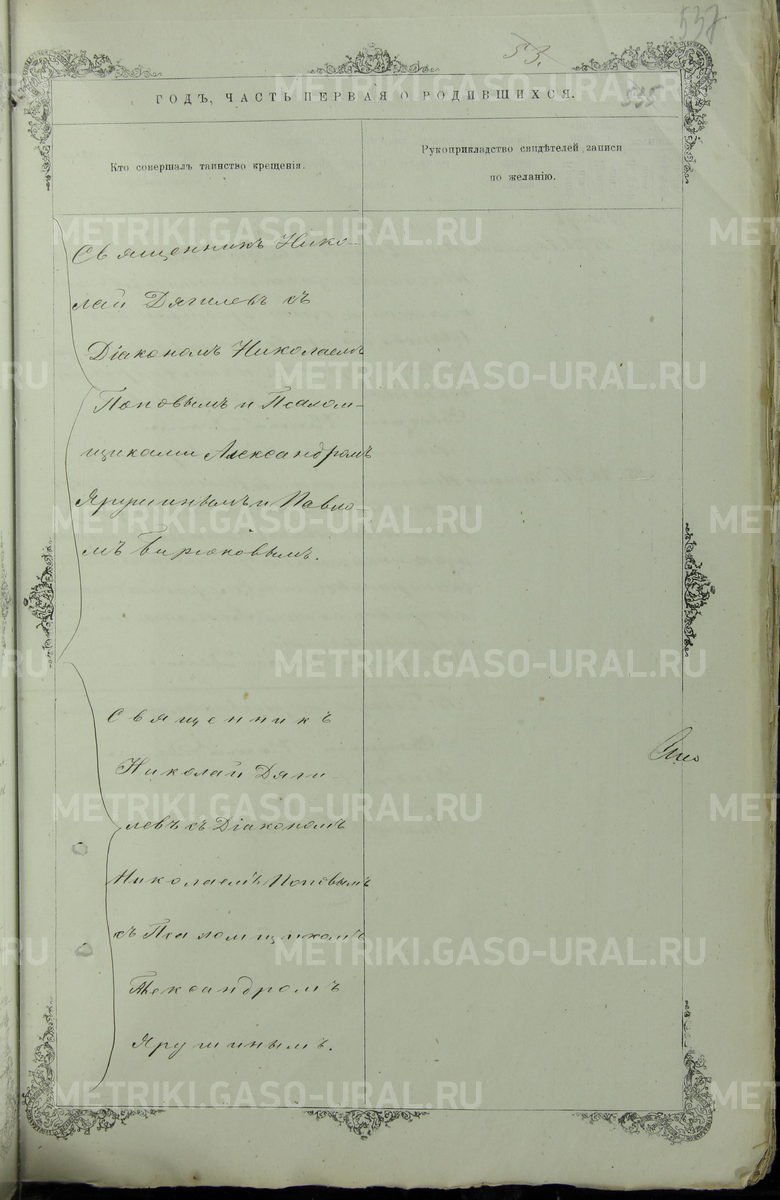 537
53.
535
ГОДЪ, ЧАСТЬ ПЕРВАЯ О РОДИВШИХСЯ.
Кто совершалъ таинство крещенія.
Рукоприкладство свидѣтелей записи
по желанію.
Священникъ Нико-
лай Дягилевъ съ
Діакономъ Николаемъ
Поповымъ и Псалом-
щиками Александромъ
Ярушинымъ и Павло-
мъ Бирюковымъ.
Священникъ
Николай Дяги-
левъ съ Діакономъ
Николаемъ Поповымъ
съ Псаломщикомъ
Александромъ
Ярушинымъ.
METRIKI.GASO-URAL.RU